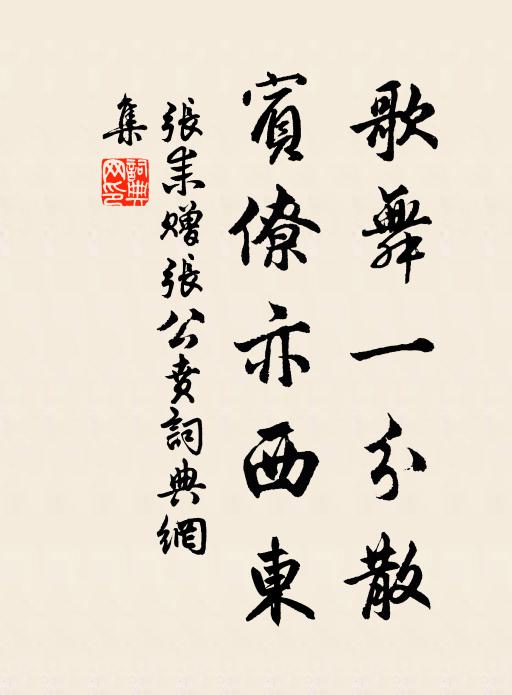 歌舞一分散
賓僚亦西東
張耒贈張公賁詞典網
集
詞典網印